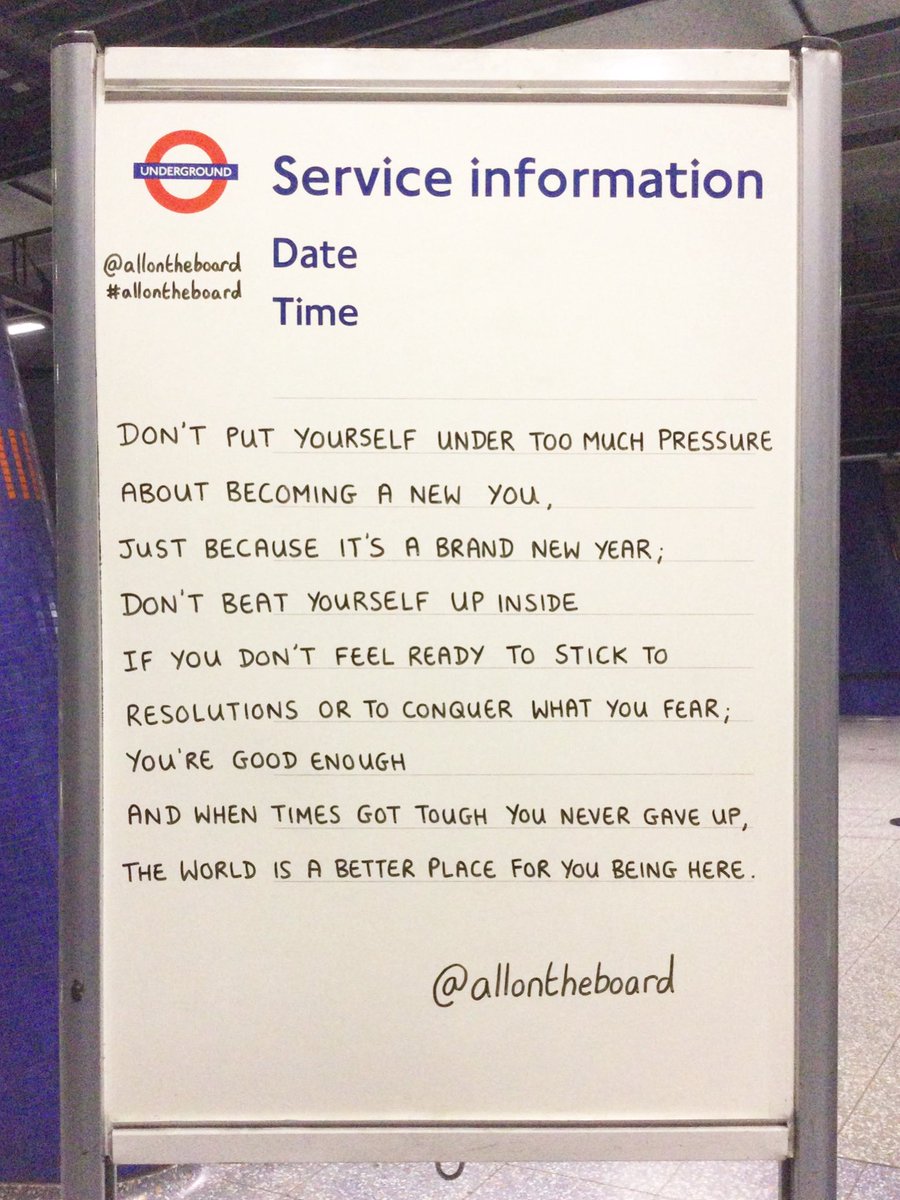 UNDERGROUND
Service information
@allontheboard
#allontheboard
Date
Time
DON'T PUT YOURSELF UNDER TOO MUCH PRESSURE
ABOUT BECOMING A NEW YOU,
JUST BECAUSE IT'S A BRAND NEW YEAR;
DON'T BEAT YOURSELF UP INSIDE
IF YOU DON'T FEEL READY TO STICK TO
RESOLUTIONS OR TO CONQUER WHAT YOU FEAR;
YOU'RE GOOD ENOUGH
AND WHEN TIMES GOT TOUGH YOU NEVER GAVE UP,
THE WORLD IS A BETTER PLACE FOR YOU BEING HERE.
@allontheboard